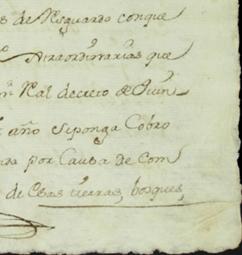 s de Resguardo conque
Extraordinarias que
Real decreto de Jun
año seponga Cobro
por Causa de Com
de Esas tierras, bosques,